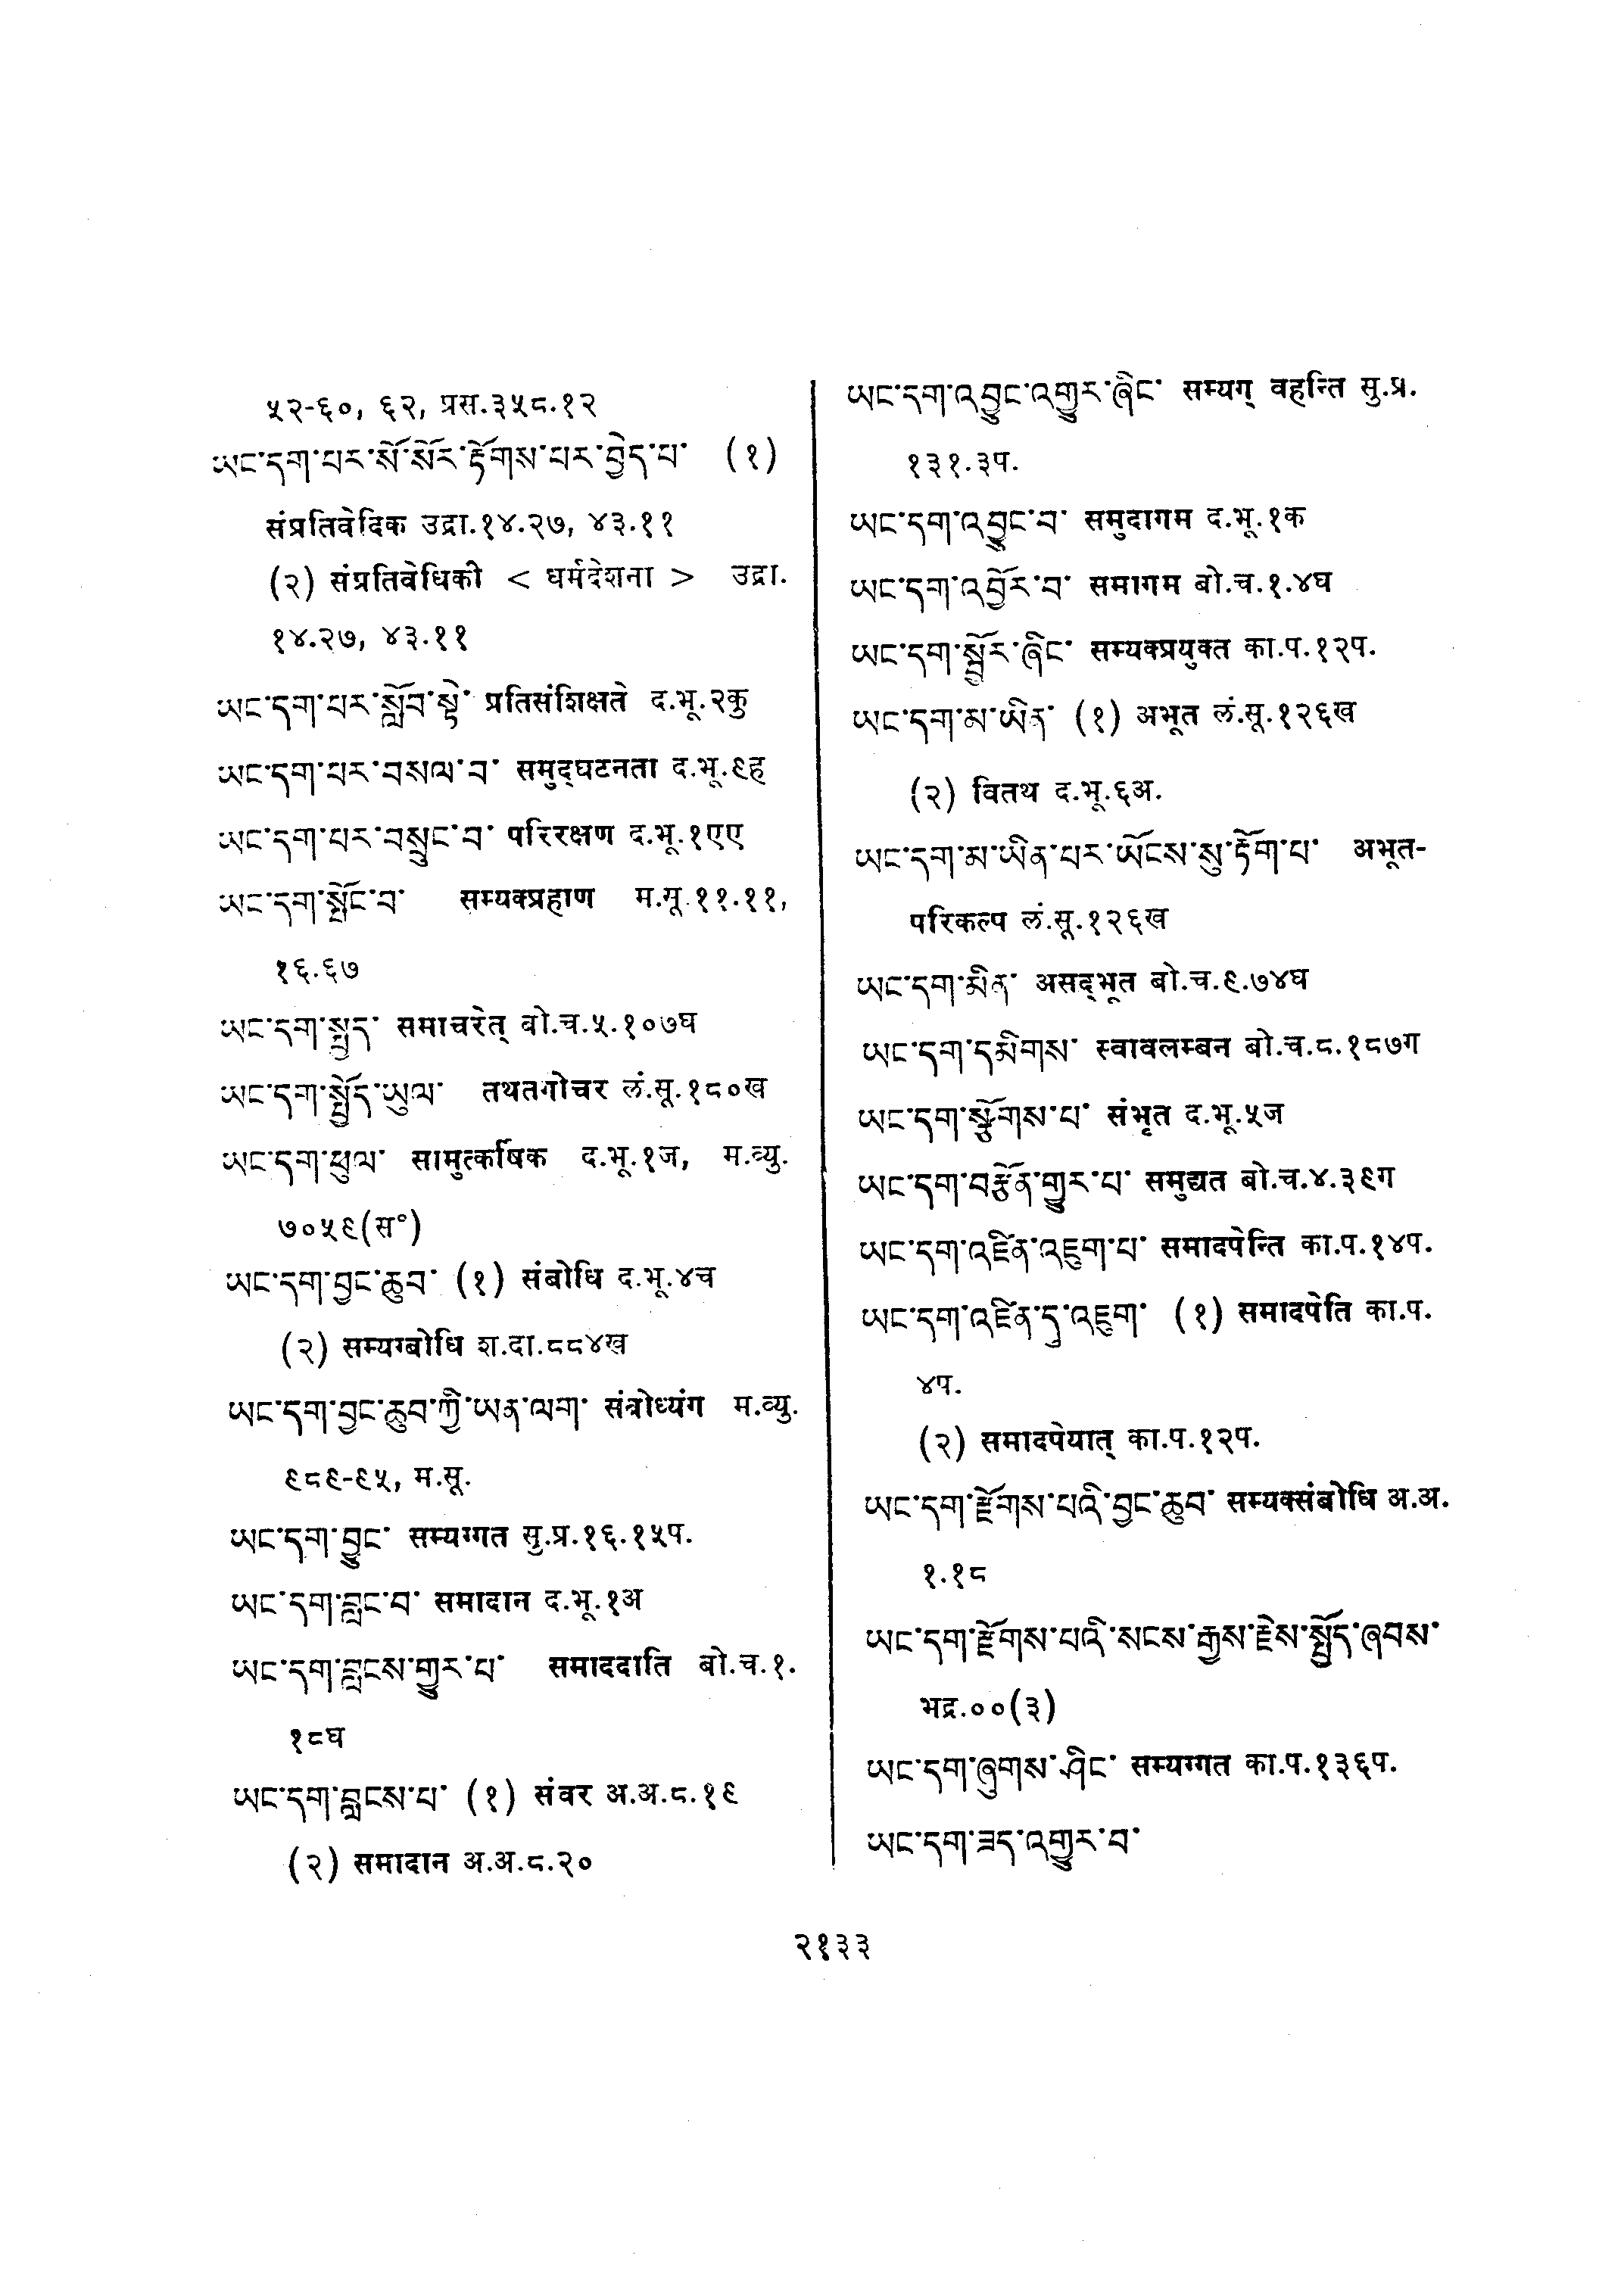 ५२-६०, ६२, प्रस.३५८.१२
ཡང་དག་པར་སོ་སོར་རྟོགས་པར་བྱེད་པ་ (१)
संप्रतिवेदिक उद्रा.१४.२७, ४३.११
(२) संप्रतिवेधिकी < धर्मदेशना > उद्रा.
१४.२७, ४३.११
ཡང་དག་པར་སློབ་སྟེ་ प्रतिसंशिक्षते द.भू.२कु
ཡང་དག་པར་བསལ་བ་ समुद्घटनता द.भू.९ह
ཡང་དག་པར་བསྲུང་བ་ परिरक्षण द.भू.१एए
ཡང་དག་སྤོང་བ་ सम्यक्प्रहाण म.सू.११.११,
१६.६७
ཡང་དག་སྤྱད་ समाचरेत् बो.च.५.१०७घ
ཡང་དག་སྤྱོད་ཡུལ་ तथतगोचर लं.सू.१८०ख
ཡང་དག་ཕུལ་ सामुत्कर्षिक द.भू.१ज, म.व्यु.
७०५९(स°)
ཡང་དག་བྱང་ཆུབ་ (१) संबोधि द.भू.४च
(२) सम्यग्बोधि श.दा.८८४ख
ཡང་དག་བྱང་ཆུབ་ཀྱི་ཡན་ལག་ संबोध्यंग म.व्यु.
९८९-९५, म.सू.
ཡང་དག་བྱུང་ सम्यग्गत सु.प्र.१६.१५प.
ཡང་དག་བླང་བ་ समादान द.भू.१अ
ཡང་དག་བླངས་གྱུར་པ་ समाददाति बो.च.१.
१८घ
ཡང་དག་བླངས་པ་ (१) संवर अ.अ.८.१९
(२) समादान अ.अ.८.२०
ཡང་དག་འབྱུང་འགྱུར་ཞིང་ सम्यग् वहन्ति सु.प्र.
१३१.३प.
ཡང་དག་འབྱུང་བ་ समुदागम द.भू.१क
ཡང་དག་འབྱོར་བ་ समागम बो.च.१.४घ
ཡང་དག་སྦྱོར་ཞིང་ सम्यक्प्रयुक्त का.प.१२प.
ཡང་དག་མ་ཡིན་ (१) अभूत लं.सू.१२६ख
(२) वितथ द.भू.६अ.
ཡང་དག་མ་ཡིན་པར་ཡོངས་སུ་རྟོག་པ་ अभूत-
परिकल्प लं.सू.१२६ख
ཡང་དག་མིན་ असद्भूत बो.च.९.७४घ
ཡང་དག་དམིགས་ स्वावलम्बन बो.च.८.१८७ग
ཡང་དག་སྩོགས་པ་ संभृत द.भू.५ज
ཡང་དག་བརྩོན་གྱུར་པ་ समुद्यत बो.च.४.३९ग
ཡང་དག་འཛིན་འཇུག་པ་ समादपेन्ति का.प.१४प.
ཡང་དག་འཛིན་དུ་འཇུག་ (१) समादपेति का.प.
४प.
(२) समादपेयात् का.प.१२प.
ཡང་དག་རྫོགས་པའི་བྱང་ཆུབ་ सम्यक्संबोधि अ.अ.
१.१८
ཡང་དག་རྫོགས་པའི་སངས་རྒྱས་རྗེས་སྤྱོད་ཞབས་
भद्र.००(३)
ཡང་དག་ཞུགས་ཤིང་ सम्यग्गत का.प.१३६प.
ཡང་དག་ཟད་འགྱུར་བ་
२१३३